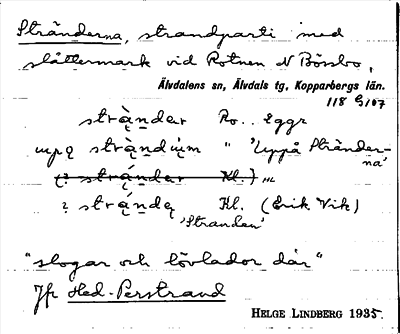 Stränderna, strandparti med
slåttermark vid Rotnen N Börsbo,
Älvdalens sn, Älvdals tg, Kopparbergs län.
118 G 107
strą̀nder Ro.. Eggr
upo strą̀ndum " 'Uppå Stränder-
na'
(? strą́nder Kl.)
? strą́ndę Kl. (Erik Vik)
'Stranden'
"slogar och lövlador där"
Jfr Hed-Perstrand
HELGE LINDBERG 1935.